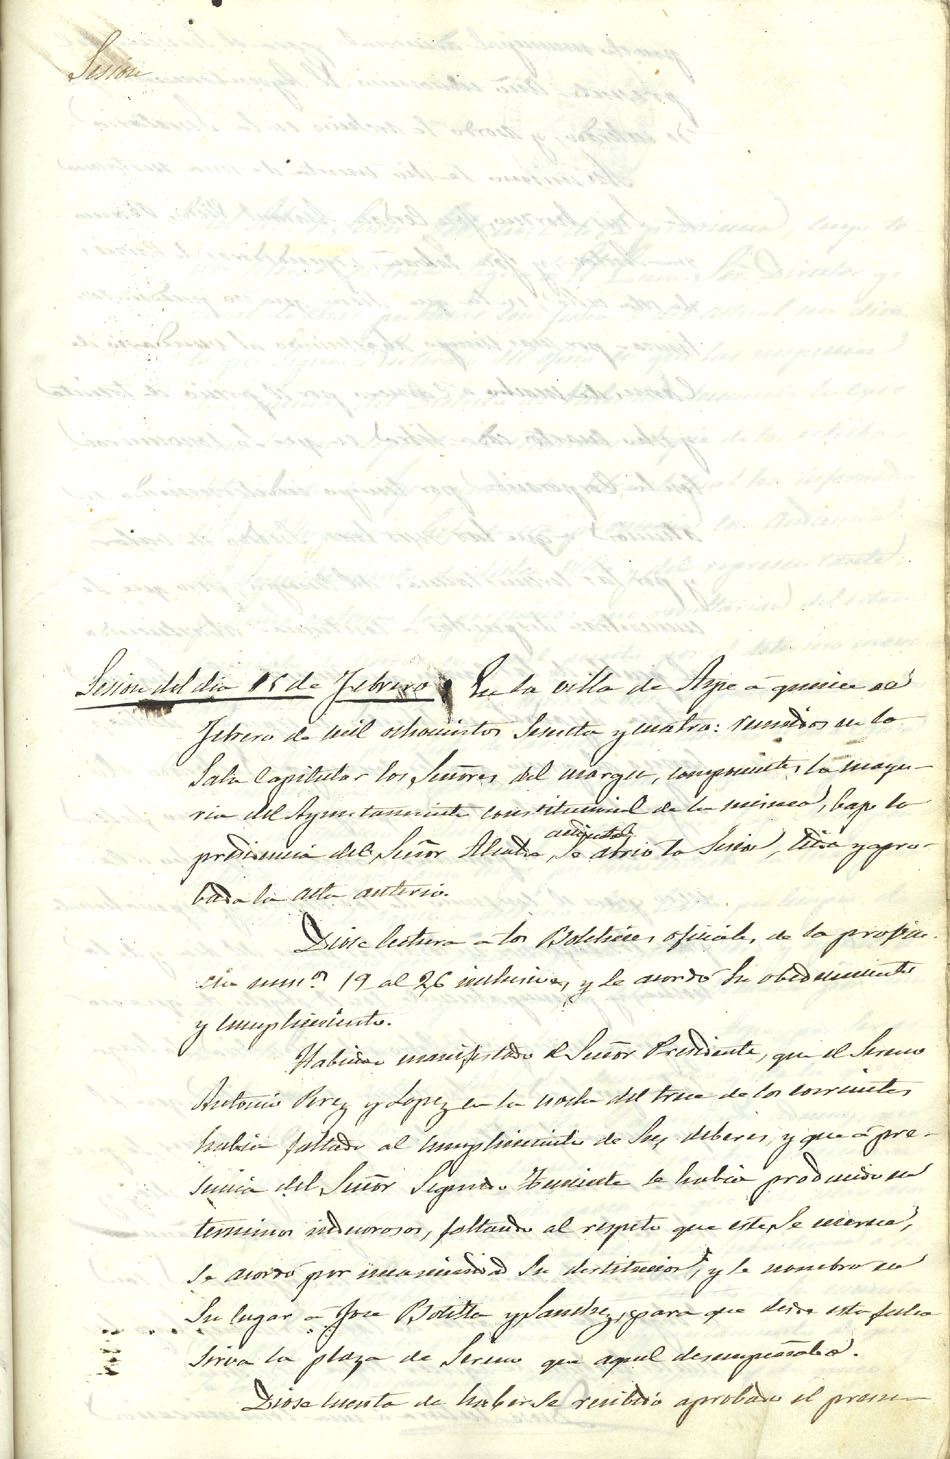 Sesion
Sesion del dia 15 de Febrero En la villa de Aspe á quince de
Febrero de mil ochocientos sesenta y cuatro: reunidos en la
Sala Capitular los Señores del margen, componentes la mayo-
ria del Ayuntamiento constitucional de la misma, bajo la
presidencia del Señor Alcalde, accidental se abrio la Sesion, leida y apro-
bada la acta anterior.
Diose lectura a los Boletines oficiales de la provin-
cia num.os 19 al 26 inclusives, y se acordó su obedecimiento
y cumplimiento.
Habiendo manifestado el Señor Presidente, que el Sereno
Antonio Perez y Lopez en la noche del trece de los corrientes
habia faltado al cumplimiento de sus deberes, y que á pre-
sencia del Señor Segundo Teniente se habia producido en
terminos indecorosos, faltando al respeto que este se merece,
se acordó por unanimidad su destitucion, y se nombro en
su lugar a Jose Botella y Sanchez, para que desde esta fecha
sirva la plaza de Sereno que aquel desempeñaba.
Diose cuenta de haberse recibido aprobado el presu-